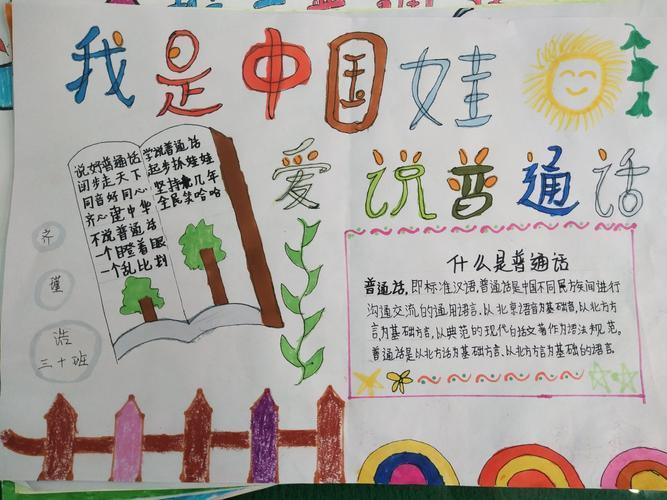 我是中国娃
爱说普通话
说好普通话
同步走天下
同音好同心
齐心建中华
不说普通话
一个瞪着眼
一个乱比划
学说普通话
起步抓娃娃
坚持几年
全民笑哈哈
齐
浩
三十班
什么是普通话
普通话,即标准汉语,普通话是中国不同民方矢间进行
沟通交流的通用语言,以北京语音为基础音,以北方方
言为基础方言,以典范的现代白话文著作为语法规范。
普通话是以北方话为基础方言,以北方方言为基础的语言。